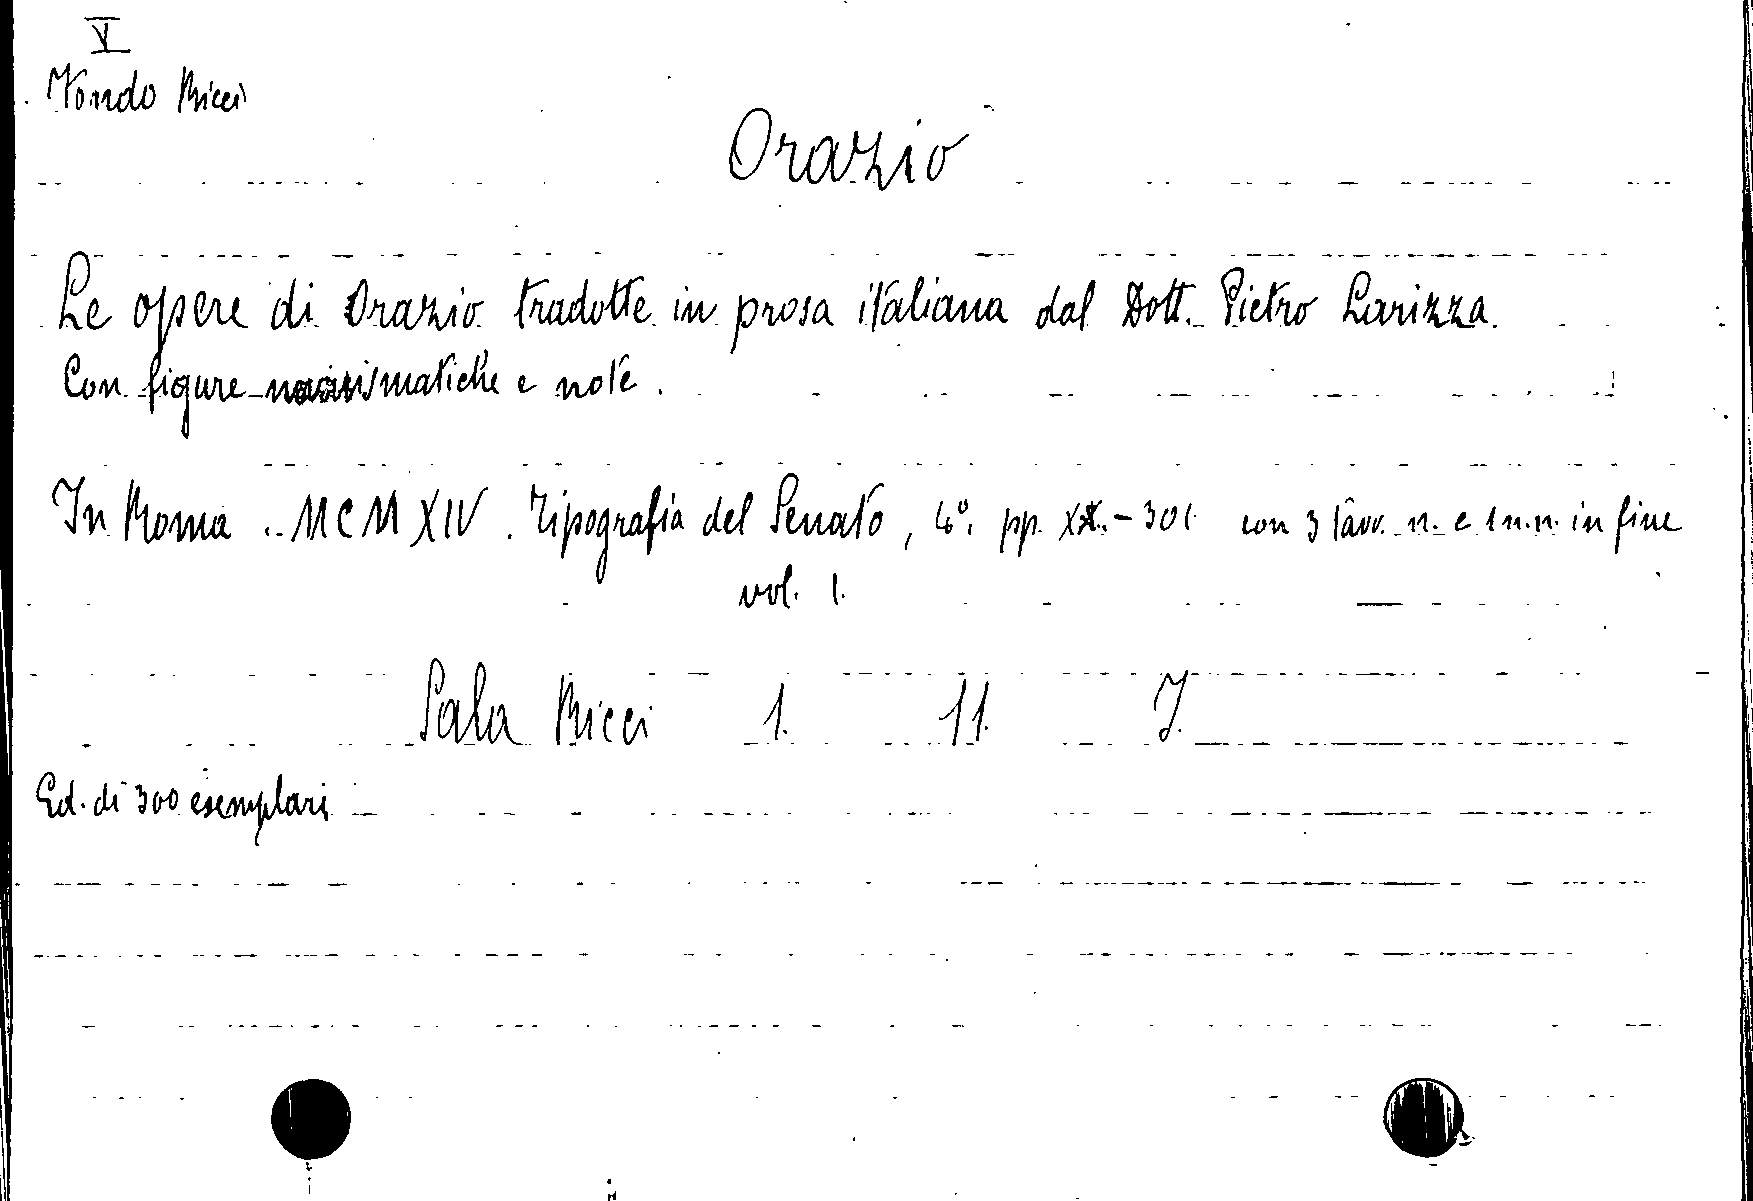 V
Fondo Ricci
Orazio
Le opere di Orazio tradotte in prosa italiana dal Dott. Pietro Larizza.
Con figure numismatiche e note.
In Roma. MCMXIV. Tipografia del Senato, 4°. pp. XX.-301 con 3 tavv. n. e 1 n.n. in fine
vol. 1.
Sala Ricci 1. 11.
Ed. di 300 esemplari